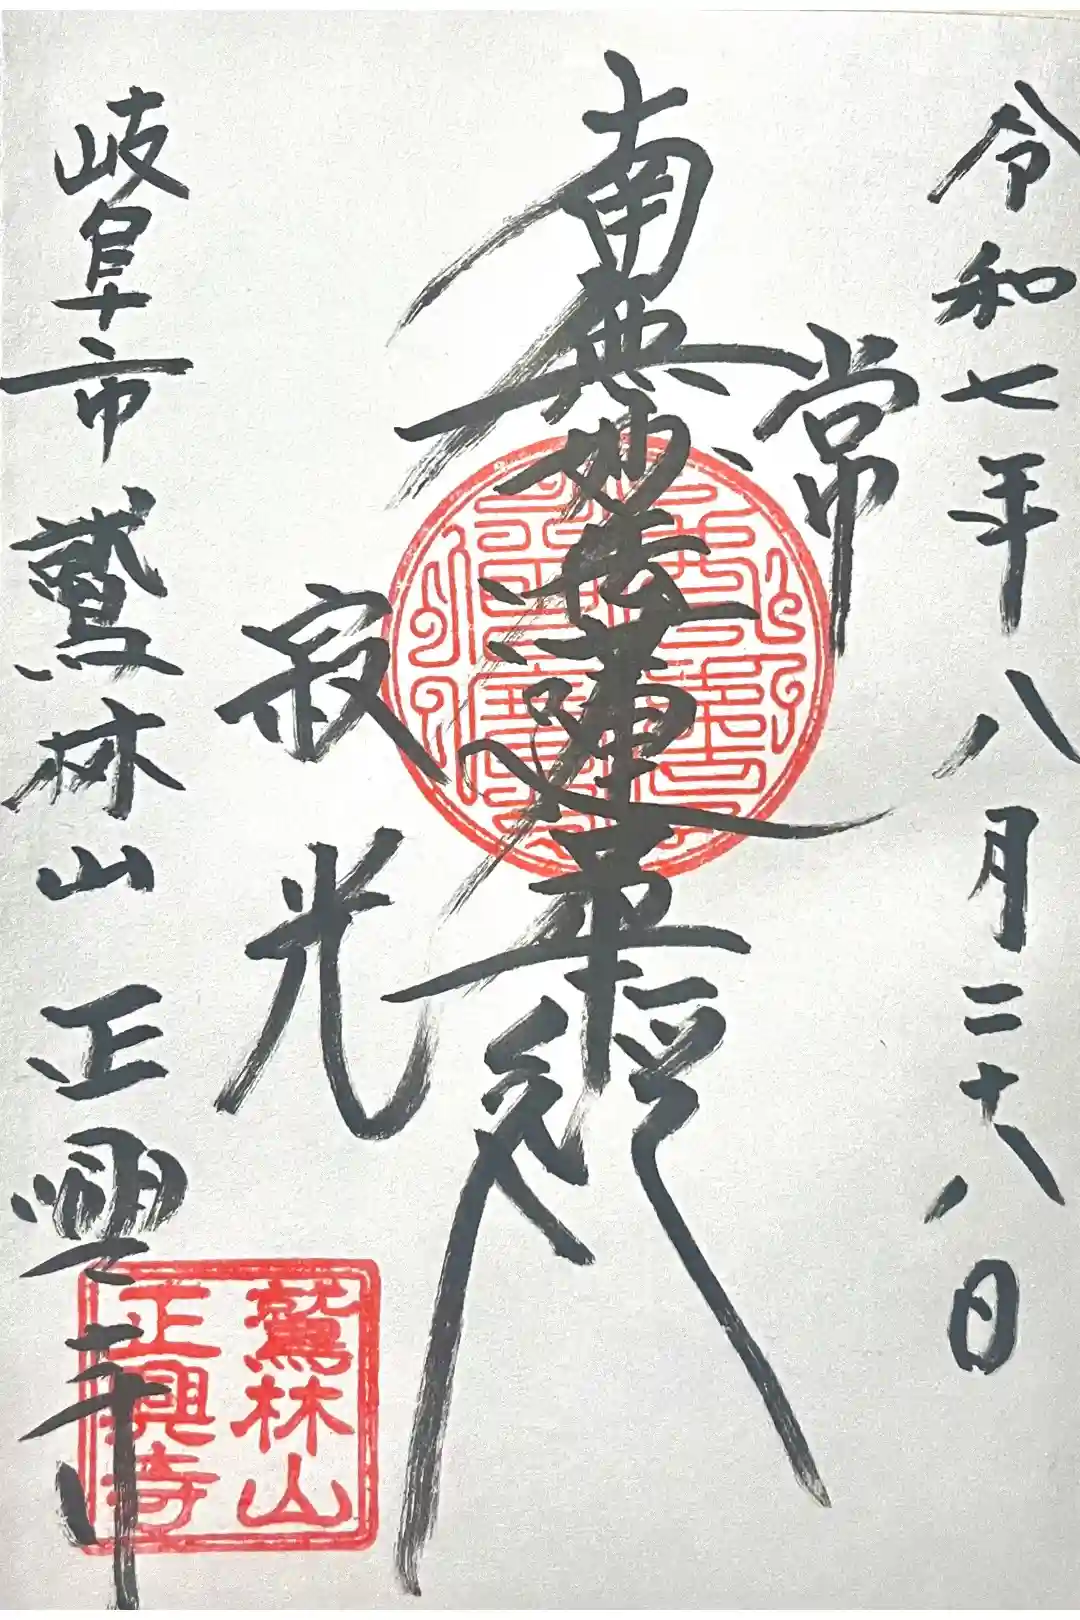 令和七年八月二十八日
常
南無妙法蓮華経
寂
光
岐阜市 鷲林山 正興寺
鷲林山
正興寺